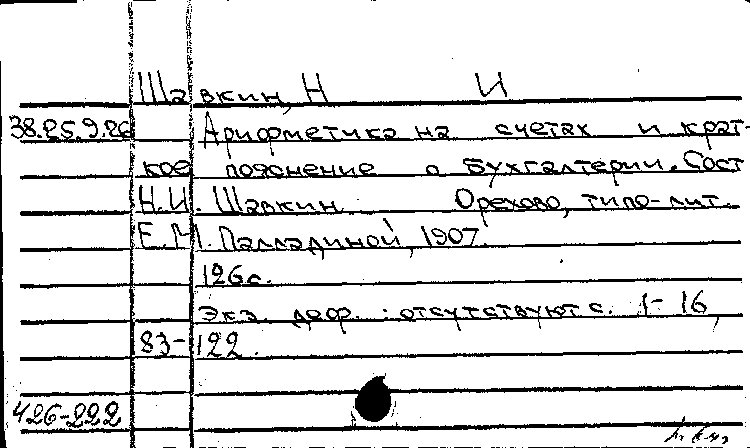 Шавкин, Н И
38.25.9.26 Арифметика на счетах и крат-
кое пояснение о бухгалтерии. Сост
Н.И. Шавкин. Орехово, типо-лит.
Е.М. Палладиной, 1907.
126с.
Экз. деф.: отсутствуют с. 1-16,
83-122.
426-222